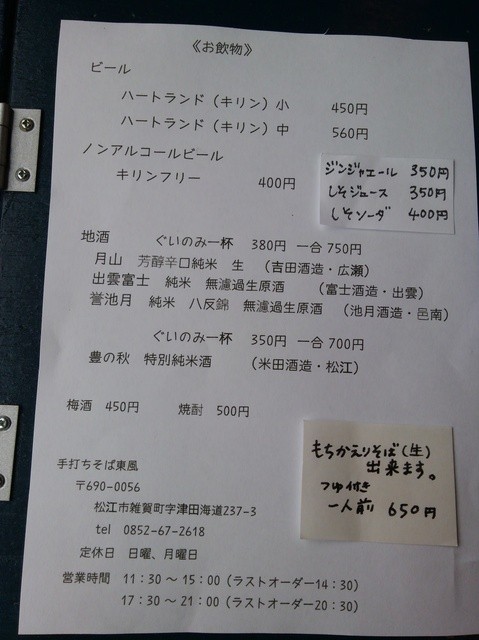 《お飲物》
ビール
ハートランド（キリン）小 450円
ハートランド（キリン）中 560円
ノンアルコールビール
キリンフリー 400円
ジンジャエール 350円
しそジュース 350円
しそソーダ 400円
地酒 ぐいのみ一杯 380円 一合 750円
月山 芳醇辛口純米 生 （吉田酒造・広瀬）
出雲富士 純米 無濾過生原酒 （富士酒造・出雲）
誉池月 純米 八反錦 無濾過生原酒 （池月酒造・邑南）
ぐいのみ一杯 350円 一合 700円
豊の秋 特別純米酒 （米田酒造・松江）
梅酒 450円 焼酎 500円
もちかえりそば（生）
出来ます。
つゆ付き
一人前 650円
手打ちそば東風
〒690-0056
松江市雑賀町字津田海道237-3
tel 0852-67-2618
定休日 日曜、月曜日
営業時間 11：30 ～ 15：00（ラストオーダー14：30）
17：30 ～ 21：00（ラストオーダー20：30）